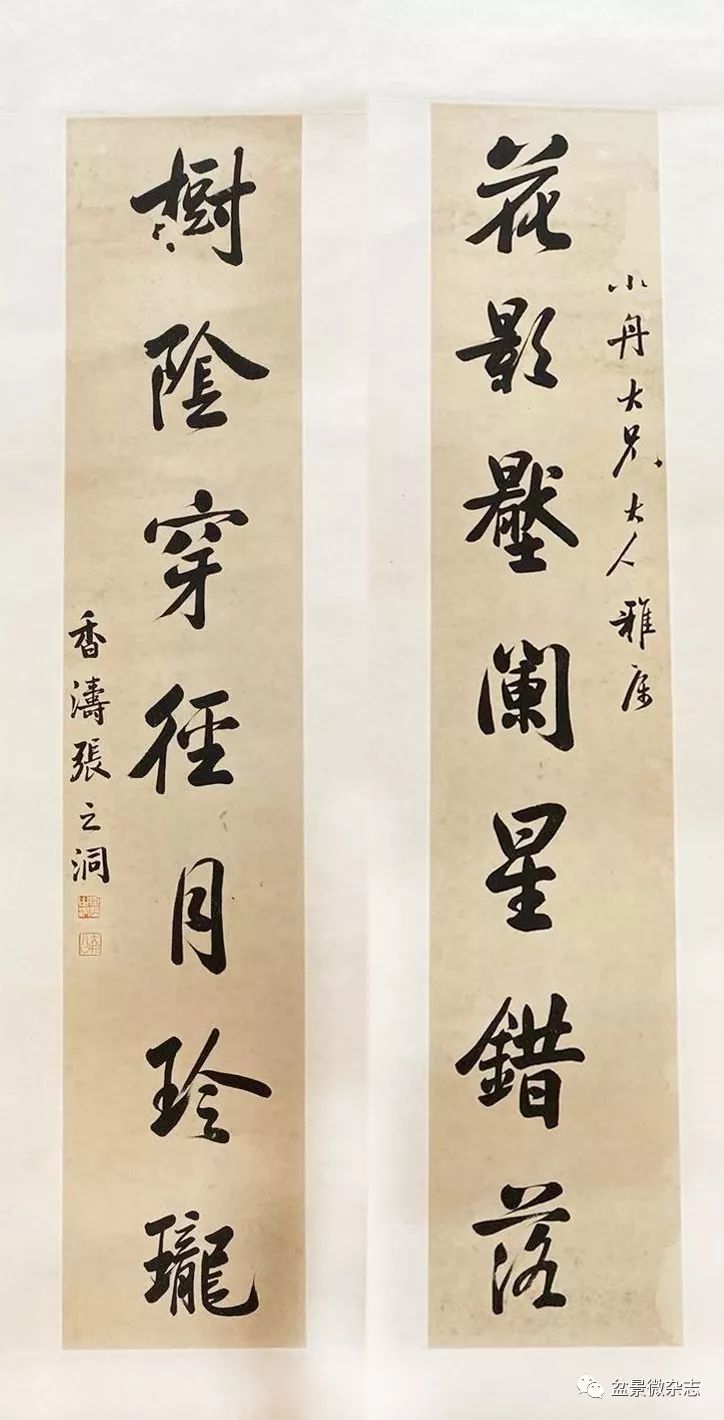 小舟大兄大人雅屬
花影壓闌星錯落
樹陰穿徑月玲瓏
香濤張之洞
盆景微杂志